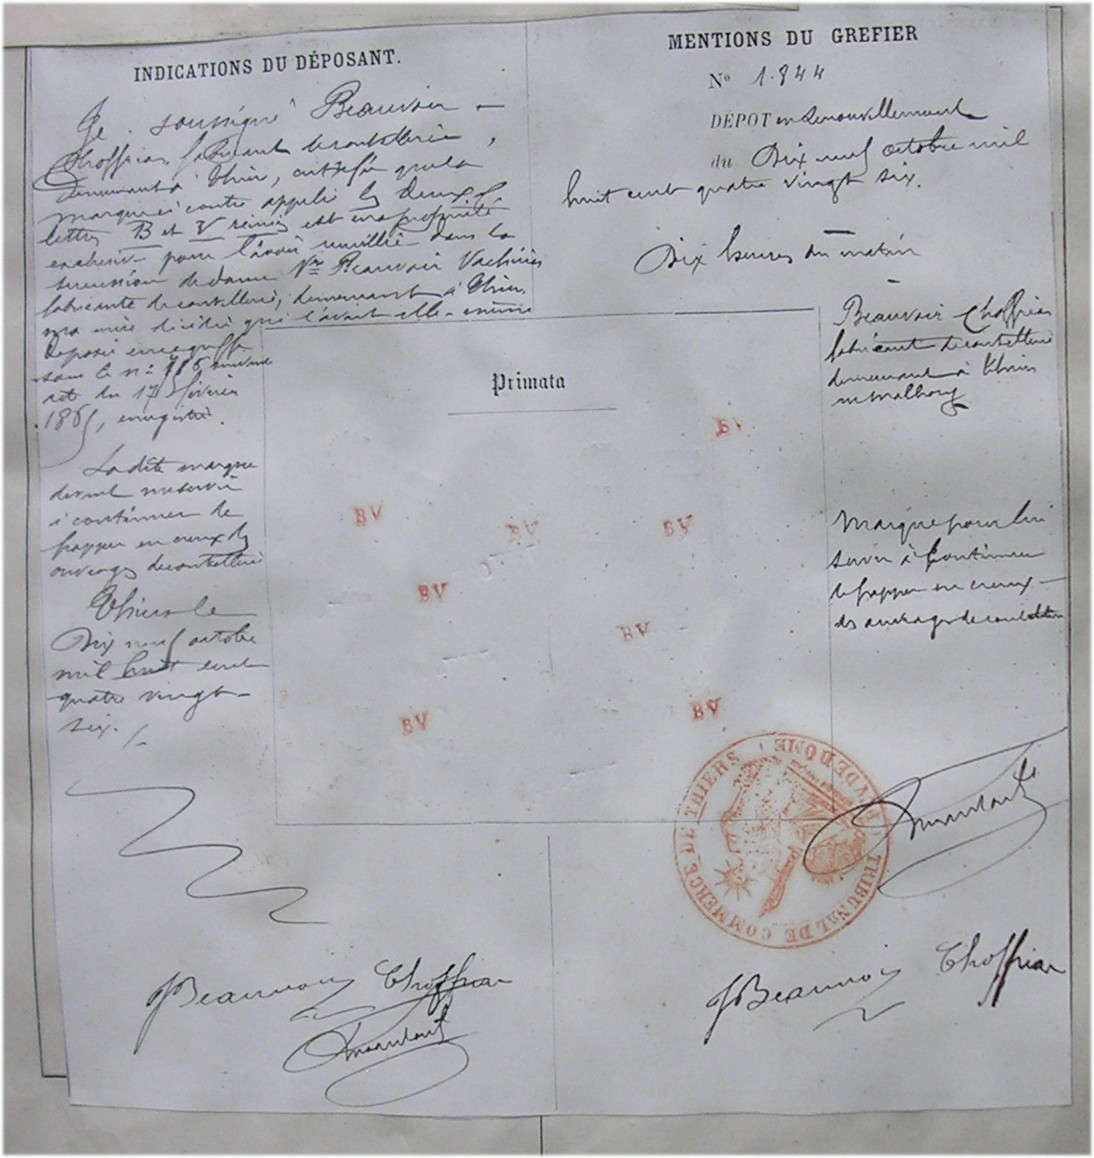 INDICATIONS DU DÉPOSANT.
Je soussigné Beauvoir -
Choffrian, fabricant de coutellerie,
demeurant à Thiers, que la
marque ci contre les deux
lettres B et V réunis est ma propriété
exclusive pour l'avoir dans la
succession de dame Vve Beauvoir
fabricante de coutellerie, demeurant à Thiers,
ma mère décédée qui l'avait elle-même
déposée au greffe
sous le n°
acte du 17 février
1865, enregistré.
La dite marque
devant me servir
à continuer de
frapper en creux les
ouvrages de coutellerie
Thiers le
Dix neuf octobre
mil huit cent
quatre vingt-
six. /-
MENTIONS DU GREFIER
N° 1.844
DÉPOT en Renouvellement
du Dix neuf octobre mil
huit cent quatre vingt six.
Dix heures du matin
Beauvoir Choffrian
fabricant de coutellerie
demeurant à Thiers
Marque pour lui
servir à continuer
de frapper en creux -
des ouvrages de coutellerie
Primata
BV
BV
BV
BV
BV
BV
BV
BV
TRIBUNAL DE COMMERCE DE THIERS
(PUY DE DOME)
Beauvoir Choffrian
Beauvoir Choffrian